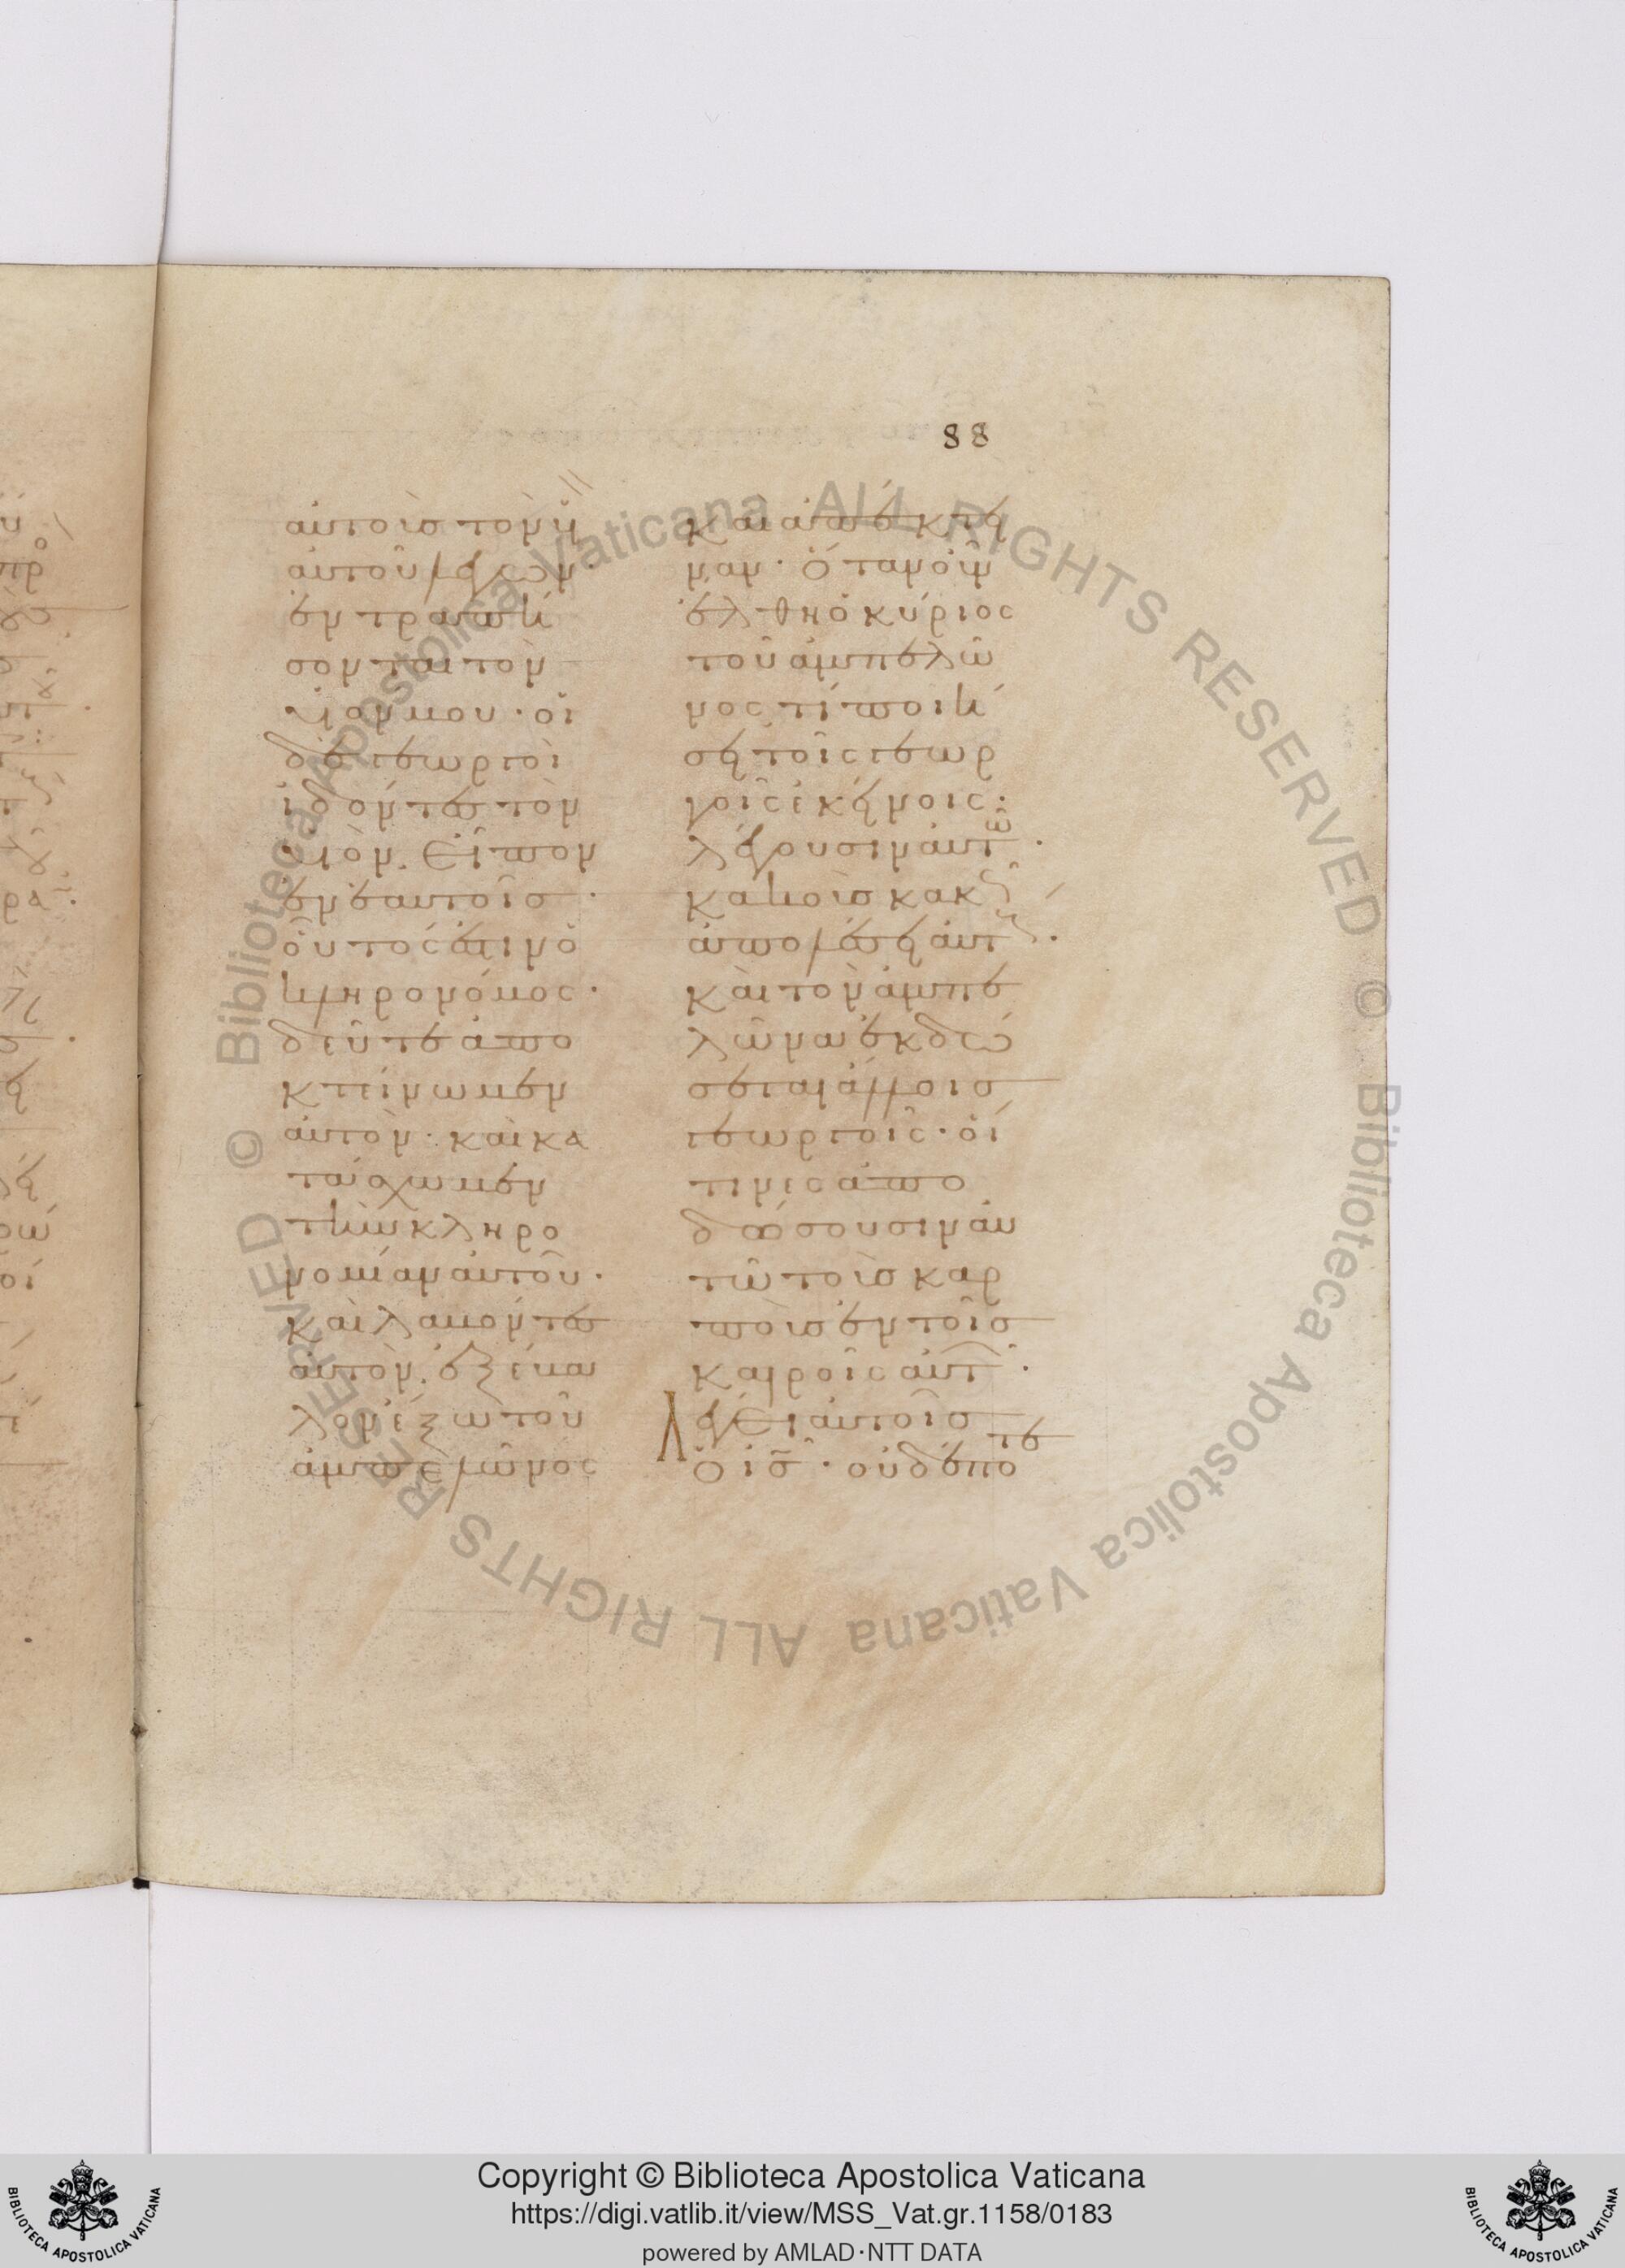 88
αὐτοὺσ τὸν υἱὸν
αὐτοῦ λέγων·
ἐντραπή
σονται τὸν
υἱόν μου· οἱ
δὲ γεωργοὶ
ἰδόντες τὸν
υἱόν. εἶπον
ἐν ἑαυτοῖσ·
οὗτός ἐστιν ὁ
κληρονόμος·
δεῦτε ἀπο
κτείνωμεν
αὐτὸν· καὶ κα
τάσχωμεν
τὴν κληρο
νομίαν αὐτοῦ·
καὶ λαβόντες
αὐτὸν. ἐξέβα
λον ἔξω τοῦ
ἀμπελῶνος
καὶ ἀπέκτει
ναν· ὅταν οὖν
ἔλθη ὁ κύριος
τοῦ ἀμπελῶ
νος τί ποιή
σει τοῖς γεωρ
γοῖς ἐκείνοις·
λέγουσιν αὐτῶ·
κακοὺσ κακῶς
ἀπολέσει αὐτούς·
καὶ τὸν ἀμπε
λῶνα ἐκδώ
σεται ἄλλοισ
γεωργοῖς· οἵ
τινες ἀπο
δώσουσιν αὐ
τῶ τοὺσ καρ
ποὺσ ἐν τοῖσ
καιροῖς αὐτῶν·
Λέγει αὐτοῖσ
ὁ ισ· οὐδέποτε
Copyright © Biblioteca Apostolica Vaticana
https://digi.vatlib.it/view/MSS_Vat.gr.1158/0183
powered by AMLAD·NTT DATA
BIBLIOTECA APOSTOLICA VATICANA
BIBLIOTECA APOSTOLICA VATICANA
© Biblioteca Apostolica Vaticana ALL RIGHTS RESERVED
© Biblioteca Apostolica Vaticana ALL RIGHTS RESERVED